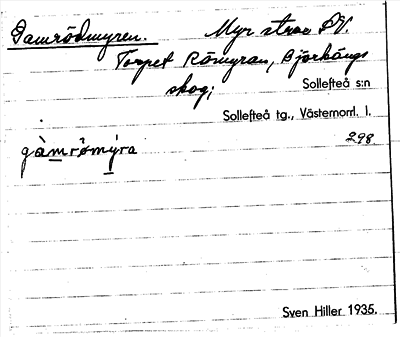 Gamrödmyren. Myr strax SV.
Torpet Römyran, Björkängs
skog; Sollefteå s:n
Sollefteå tg., Västernorrl. l.
gàmrömýra 298
Sven Hiller 1935.